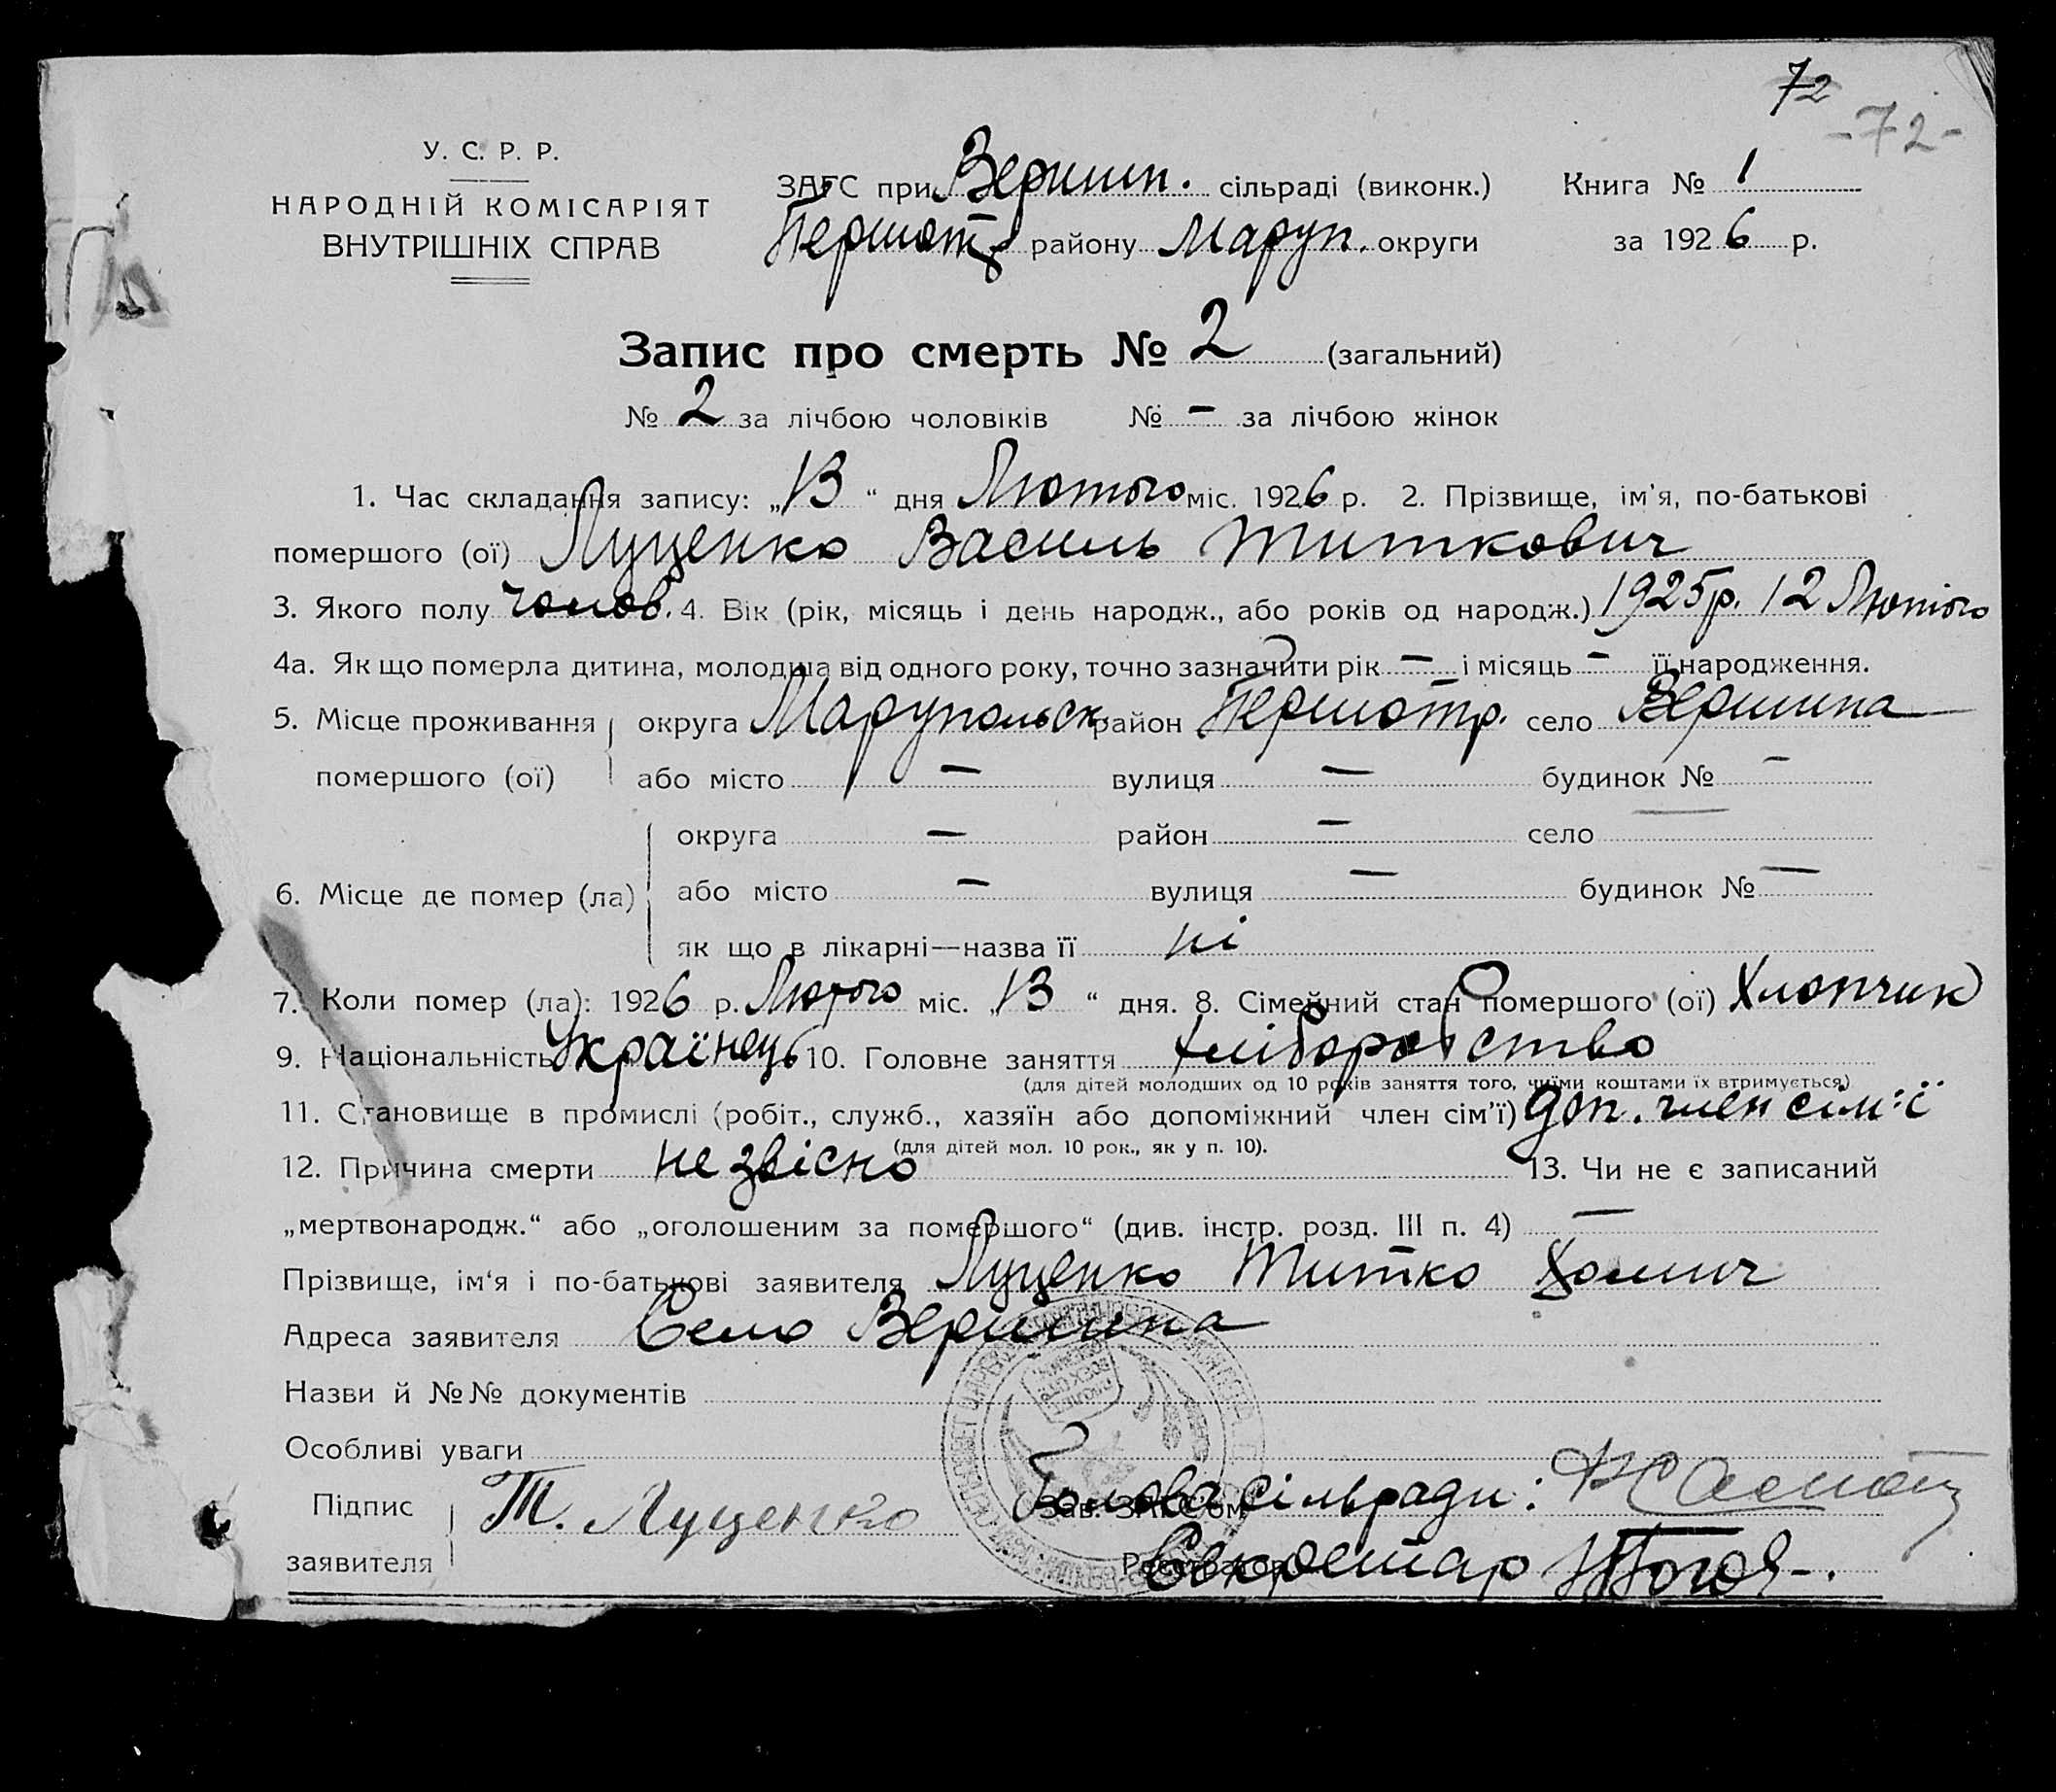 72
-72-
У. С. Р. Р.
НАРОДНІЙ КОМІСАРІЯТ
ВНУТРІШНІХ СПРАВ
ЗАГС при Вершин. сільраді (виконк.) Книга № 1
Першотр району Маруп. округи за 1926 р.
Запис про смерть № 2 (загальний)
№ 2 за лічбою чоловіків № — за лічбою жінок
1. Час складання запису: „13“ дня Лютого міс. 1926 р. 2. Прізвище, ім'я, по-батькові
помершого (ої) Луценко Василь Титкович
3. Якого полу чолов. 4. Вік (рік, місяць і день народж., або років од народж.) 1925 р. 12 Лютого
4а. Як що померла дитина, молодша від одного року, точно зазначити рік — і місяць — її народження.
5. Місце проживання округа Марупольск район Першотр. село Вершина
помершого (ої) або місто — вулиця — будинок № —
округа — район — село —
6. Місце де помер (ла) або місто — вулиця — будинок № —
як що в лікарні—назва її ні
7. Коли помер (ла): 1926 р. Лютого міс. „13“ дня. 8. Сімейний стан помершого (ої) Хлопчик
9. Національність Українець 10. Головне заняття хліборобство
(для дітей молодших од 10 років заняття того, чиїми коштами їх втримується)
11. Становище в промислі (робіт., служб., хазяїн або допоміжний член сім'ї) доп. член сім'ї
(для дітей мол. 10 рок., як у п. 10).
12. Причина смерти не звісно 13. Чи не є записаний
„мертвонародж.“ або „оголошеним за помершого“ (див. інстр. розд. III п. 4) —
Прізвище, ім'я і по-батькові заявителя Луценко Титко Хомич
Адреса заявителя Село Вершина
Назви й №№ документів
Особливі уваги
Підпис Т. Луценко Зав. ЗАГС'ом Голова сільради:
заявителя Реєстратор Секретар